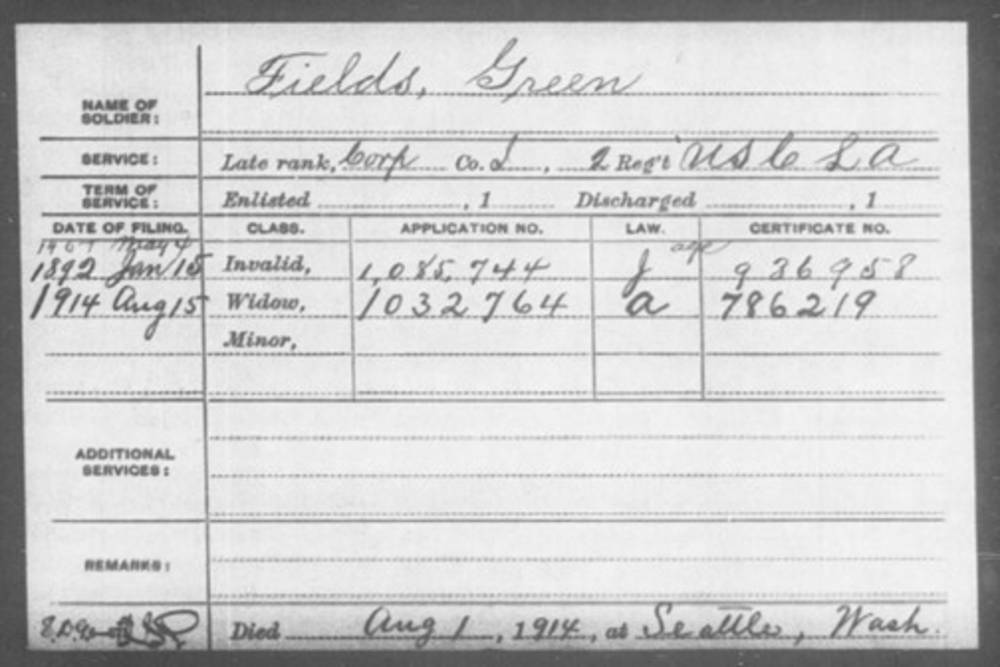 Fields, Green
NAME OF
SOLDIER:
SERVICE: Late rank, Corp Co. I, 2 Reg't US C L A
TERM OF
SERVICE: Enlisted , 1 Discharged , 1
DATE OF FILING. CLASS. APPLICATION NO. LAW. CERTIFICATE NO.
1907 May 4 age
1892 Jan 15 Invalid, 1,085,744 J 936958
1914 Aug 15 Widow, 1032764 a 786219
Minor,
ADDITIONAL
SERVICES:
REMARKS:
Died Aug 1, 1914, at Seattle, Wash.